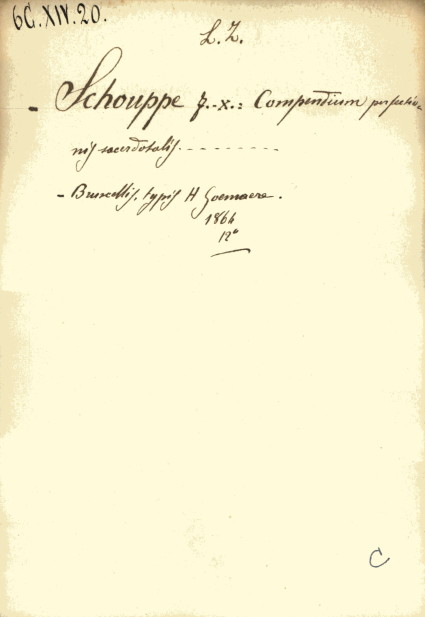 6C.XIV.20.
L.Z.
- Schouppe F.-X.: Compendium perfectio-
nis sacerdotalis.---------
- Bruxellis, typis H Goemaere.
1864
12°
C